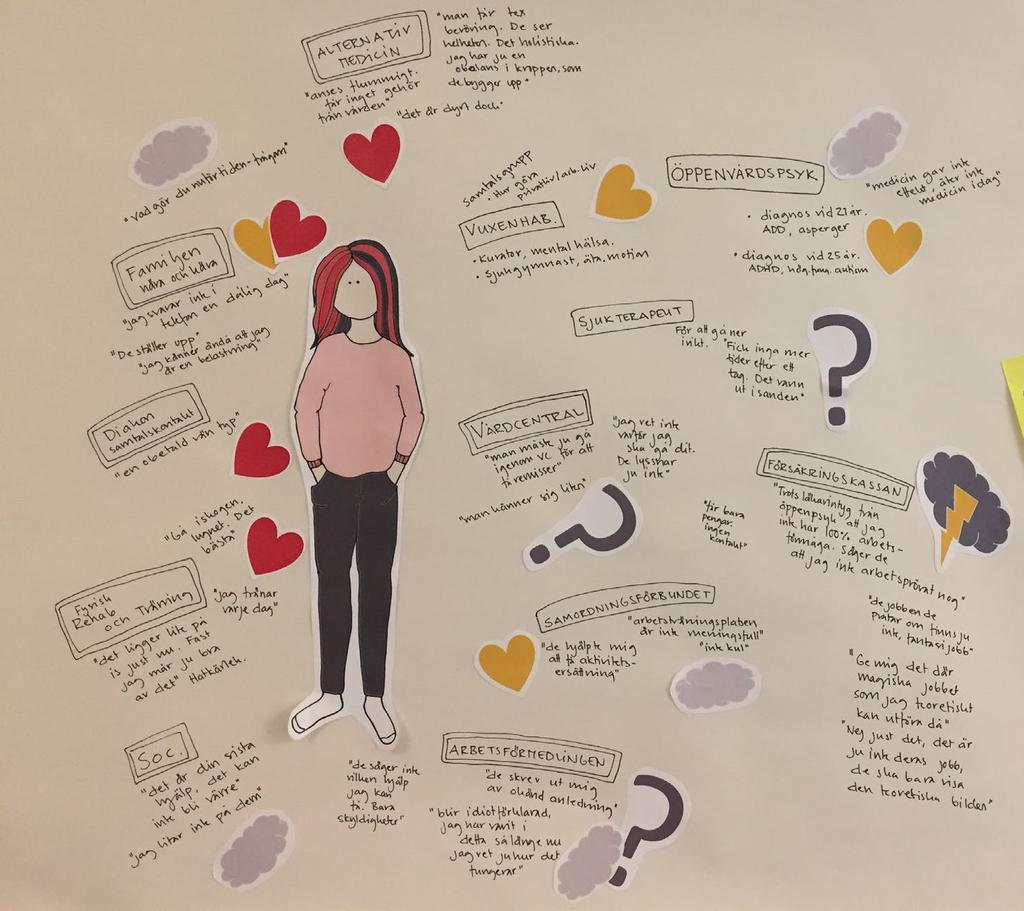 ALTERNATIV
MEDICIN
"man får tex
beröring. De ser
helheten. Det holistiska.
jag har ju en
obalans i kroppen, som
de bygger upp"
"anses flummigt.
får inget gehör
från vården"
"det är dyrt dock"
"vad gör du nuförtiden-frågan"
Familjen
nära och kära
"jag svarar ink i
telefon en dålig dag"
"De ställer upp"
"jag känner ändå att jag
är en belastning"
Diakon
samtalskontakt
"en obetald vän typ"
"Gå i skogen.
lugnet. Det
bästa"
Fysisk
Rehab
och Träning
"jag tränar
varje dag"
"det ligger lite på
is just nu. Fast
jag mår ju bra
av det" Hatkärlek.
Soc.
"det är din sista
hjälp, det kan
inte bli värre"
"jag litar inte på dem"
samtalsgrupp
• Hur göra
privatliv/arb.liv
VUXENHAB.
• Kurator, mental hälsa.
• Sjukgymnast, äta, motion
ÖPPENVÅRDSPSYK
"medicin gav ink
effekt, äter ink
medicin idag"
• diagnos vid 21 år.
ADD, asperger
• diagnos vid 25 år.
ADHD, hög.fung. autism
SJUKTERAPEUT
För att gå ner
i vikt.
"Fick inga mer
tider efter ett
tag. Det rann
ut i sanden"
VÅRDCENTRAL
"man måste ju gå
igenom VC för att
få remisser"
"jag vet inte
varför jag
ska gå dit.
De lyssnar
ju ink"
"man känner sig liten"
FÖRSÄKRINGSKASSAN
"Trots läkarintyg från
öppenpsyk att jag
ink har 100% arbets-
förmåga. Säger de
att jag ink arbetsprövat nog"
"får bara
pengar.
ingen
kontakt"
"de jobben de
pratar om finns ju
ink, fantasijobb"
"Ge mig det där
magiska jobbet
som jag teoretiskt
kan utföra då"
"Nej just det, det är
ju ink deras jobb,
de ska bara visa
den teoretiska bilden"
SAMORDNINGSFÖRBUNDET
"de hjälpte mig
att få aktivitets-
ersättning"
"arbetsträningsplatsen
är ink meningsfull"
"ink kul"
ARBETSFÖRMEDLINGEN
"de säger ink
vilken hjälp
jag kan
få. Bara
skyldigheter"
"de skrev ut mig
av okänd anledning"
"blir idiotförklarad,
jag har varit i
detta så länge nu
jag vet ju hur det
fungerar"